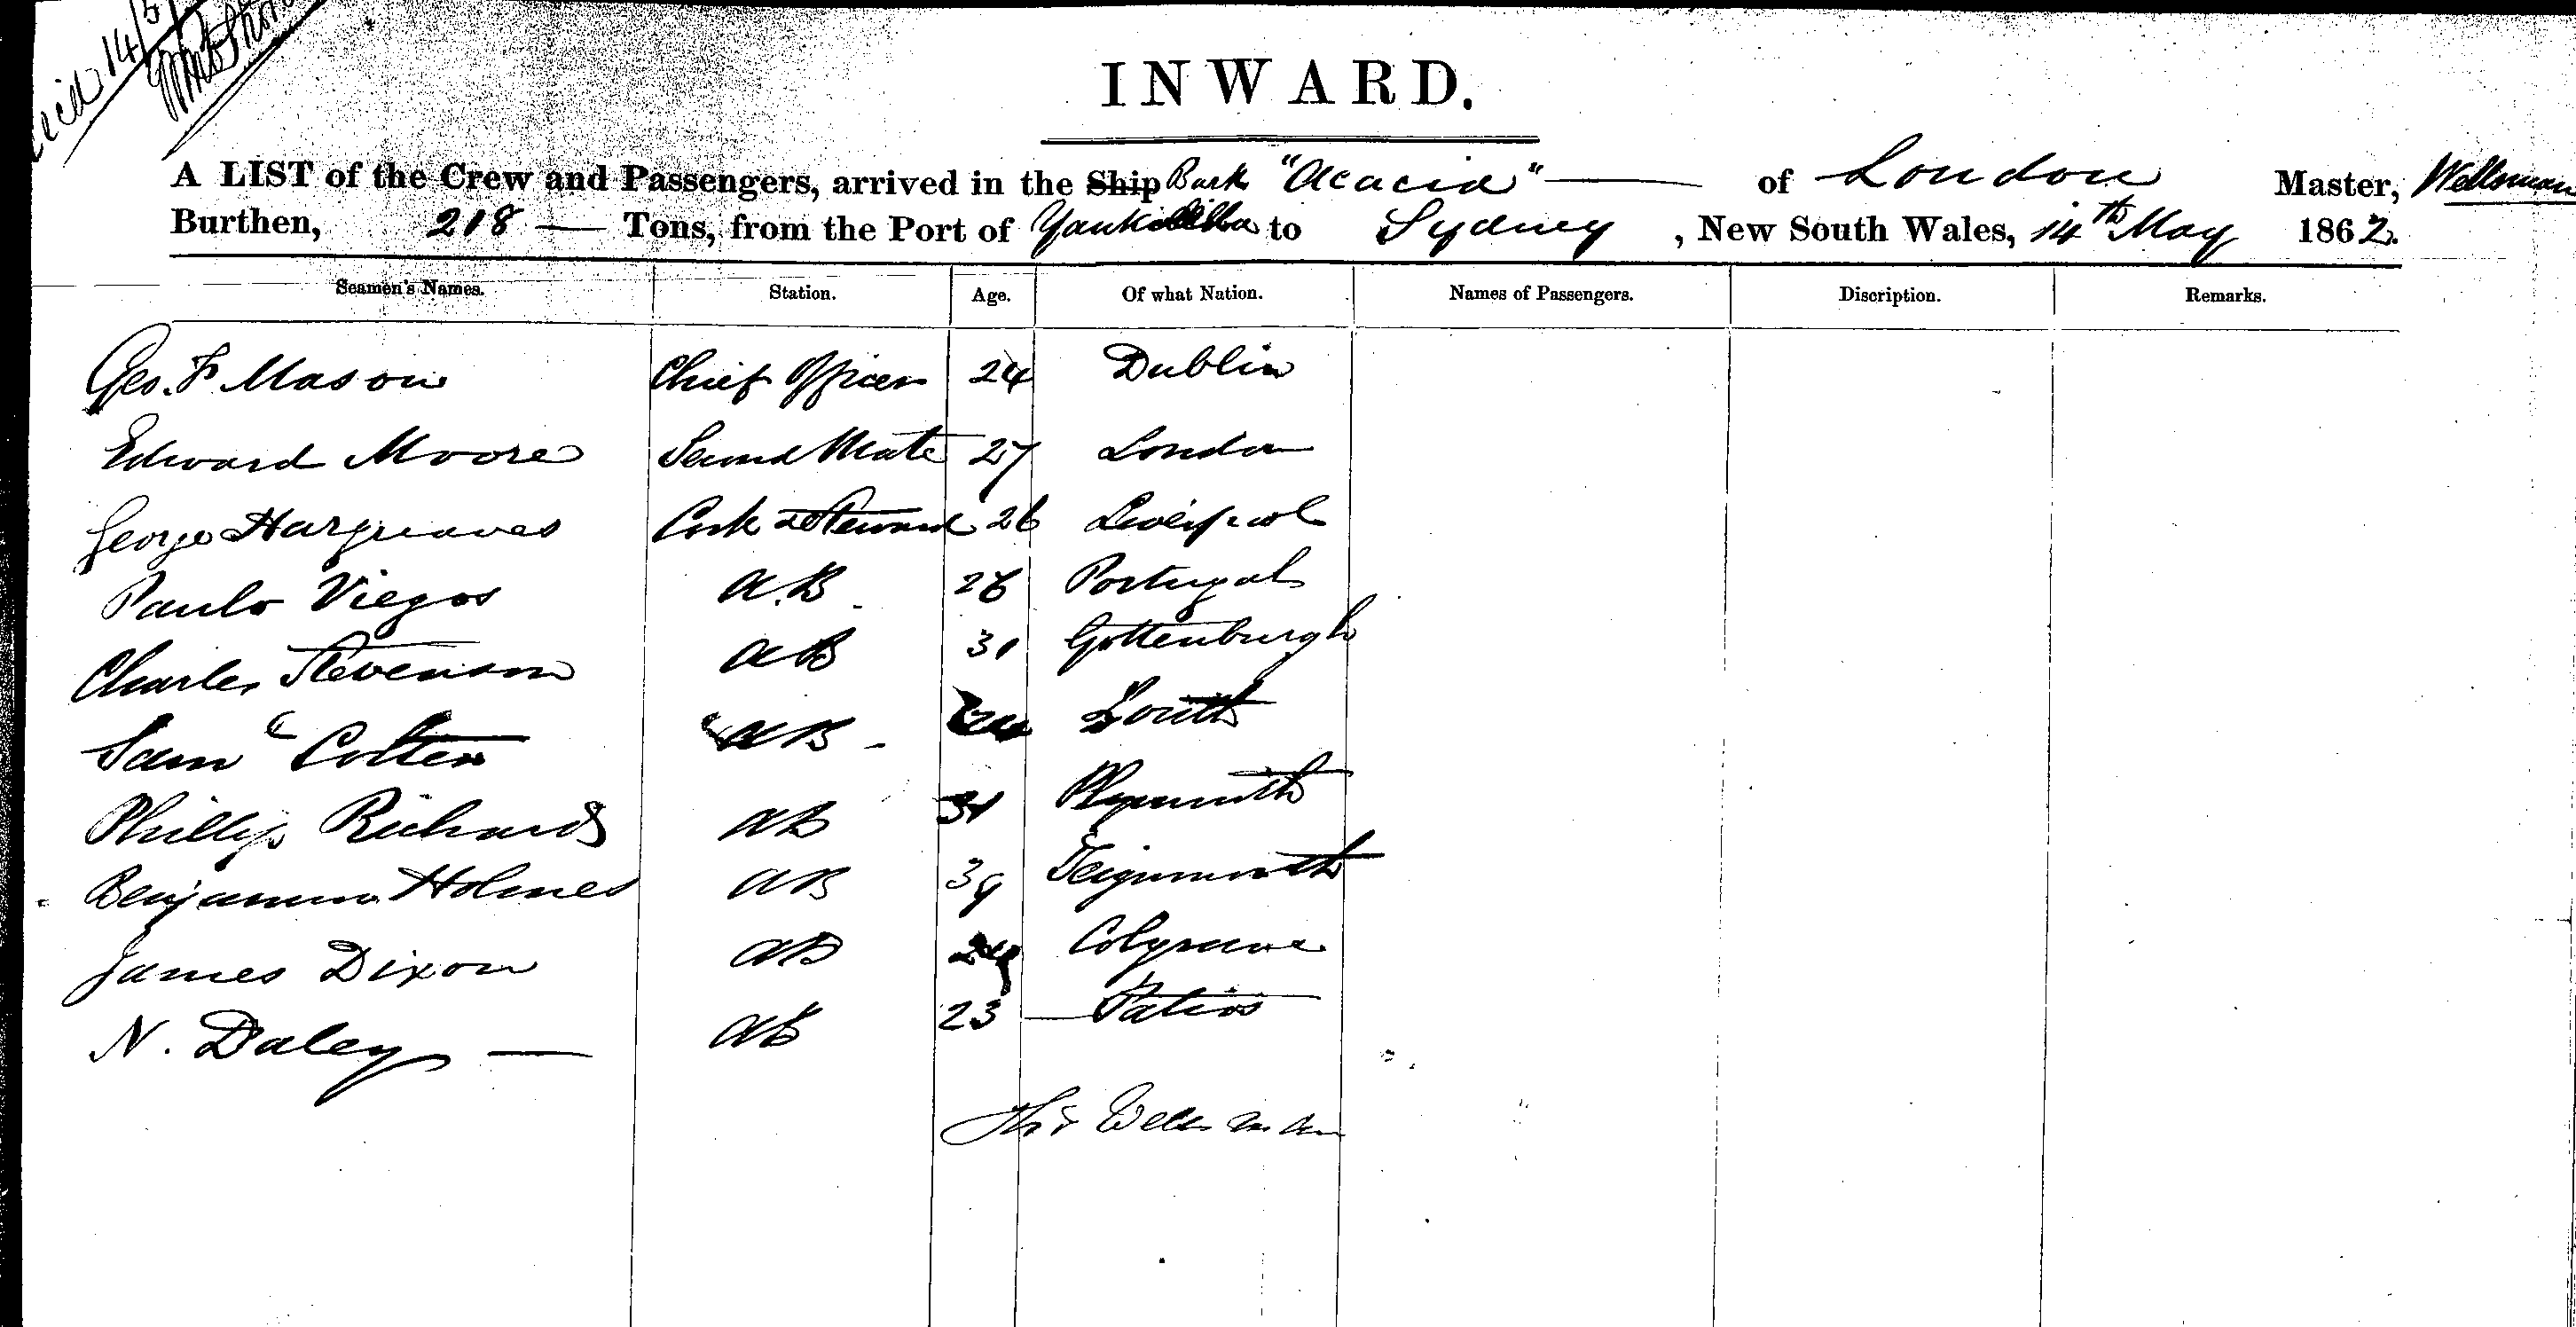 14/5
INWARD.
A LIST of the Crew and Passengers, arrived in the Ship Bark "Acacia" — of London Master, Wellsman
Burthen, 218 — Tons, from the Port of Yankalilla to Sydney, New South Wales, 14th May 1862.
Seamen's Names. Station. Age. Of what Nation. Names of Passengers. Discription. Remarks.
Geo. F Mason Chief Officer 24 Dublin
Edward Moore Second Mate 27 London
George Hargreaves Cook & Steward 26 Liverpool
Paulo Viegos A.B. 26 Portugal
Charles Stevenson AB 31 Gottenburgh
Saml Colter AB - Louth
Phillip Richards AB 31 Plymouth
Benjamin Holmes AB 39 Teignmouth
James Dixon AB Colgrave
N. Daley — AB 23 — Patios
Thos Wellsman